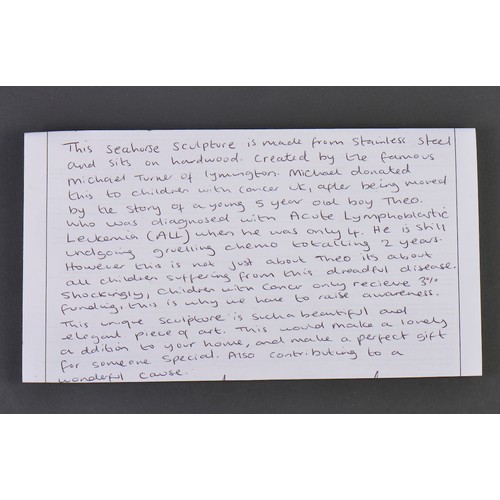 This seahorse sculpture is made from Stainless Steel
and sits on hardwood. Created by the famous
Michael Turner of lymington. Michael donated
this to children with cancer UK, after being moved
by the story of a young 5 year old boy Theo.
Who was diagnosed with Acute Lymphoblastic
Leukemia (ALL) when he was only 4. He is still
undgoing gruelling chemo totalling 2 years.
However this is not just about Theo its about
all children suffering from this dreadful disease.
Shockingly, children with cancer only recieve 3%
funding, this is why we have to raise awareness.
This unique sculpture is such a beautiful and
elegant piece of art. This would make a lovely
addition to your home, and make a perfect gift
for someone special. Also contributing to a
wonderful cause.